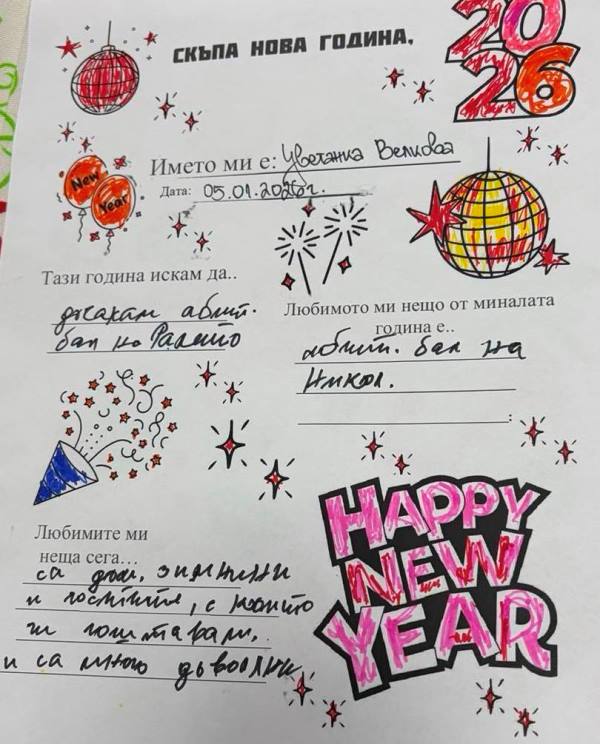 СКЪПА НОВА ГОДИНА,
2026
Името ми е: Цветанка Велкова
Дата: 05.01.2026г.
New
Year
Тази година искам да..
дочакам абит.
бал на
Любимото ми нещо от миналата
година е..
абит. бал на
Никол.
Любимите ми
неща сега...
са дом,
и гостите, с които
и са много доволни
HAPPY
NEW
YEAR